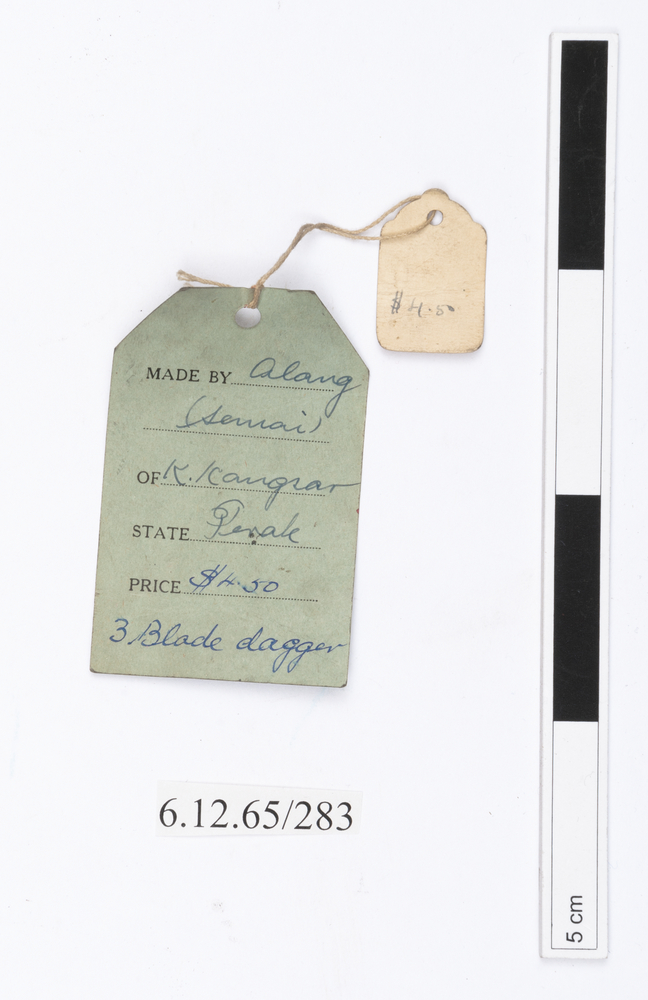 MADE BY Alang
(Semai)
OF K. Kangsar
STATE Perak
PRICE $4.50
3 Blade dagger
$4.50
6.12.65/283
5 cm